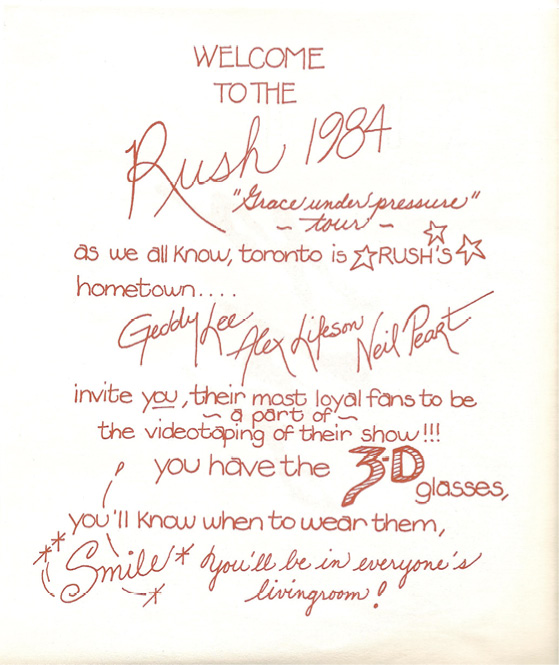 WELCOME
TO THE
Rush 1984
"Grace under pressure"
~ tour ~
as we all know, toronto is ☆RUSH'S☆☆
hometown....
Geddy Lee Alex Lifeson Neil Peart
invite you, their most loyal fans to be
~ a part of ~
the videotaping of their show!!!
you have the 3-D
glasses,
you'll know when to wear them,
Smile * You'll be in everyone's
livingroom!